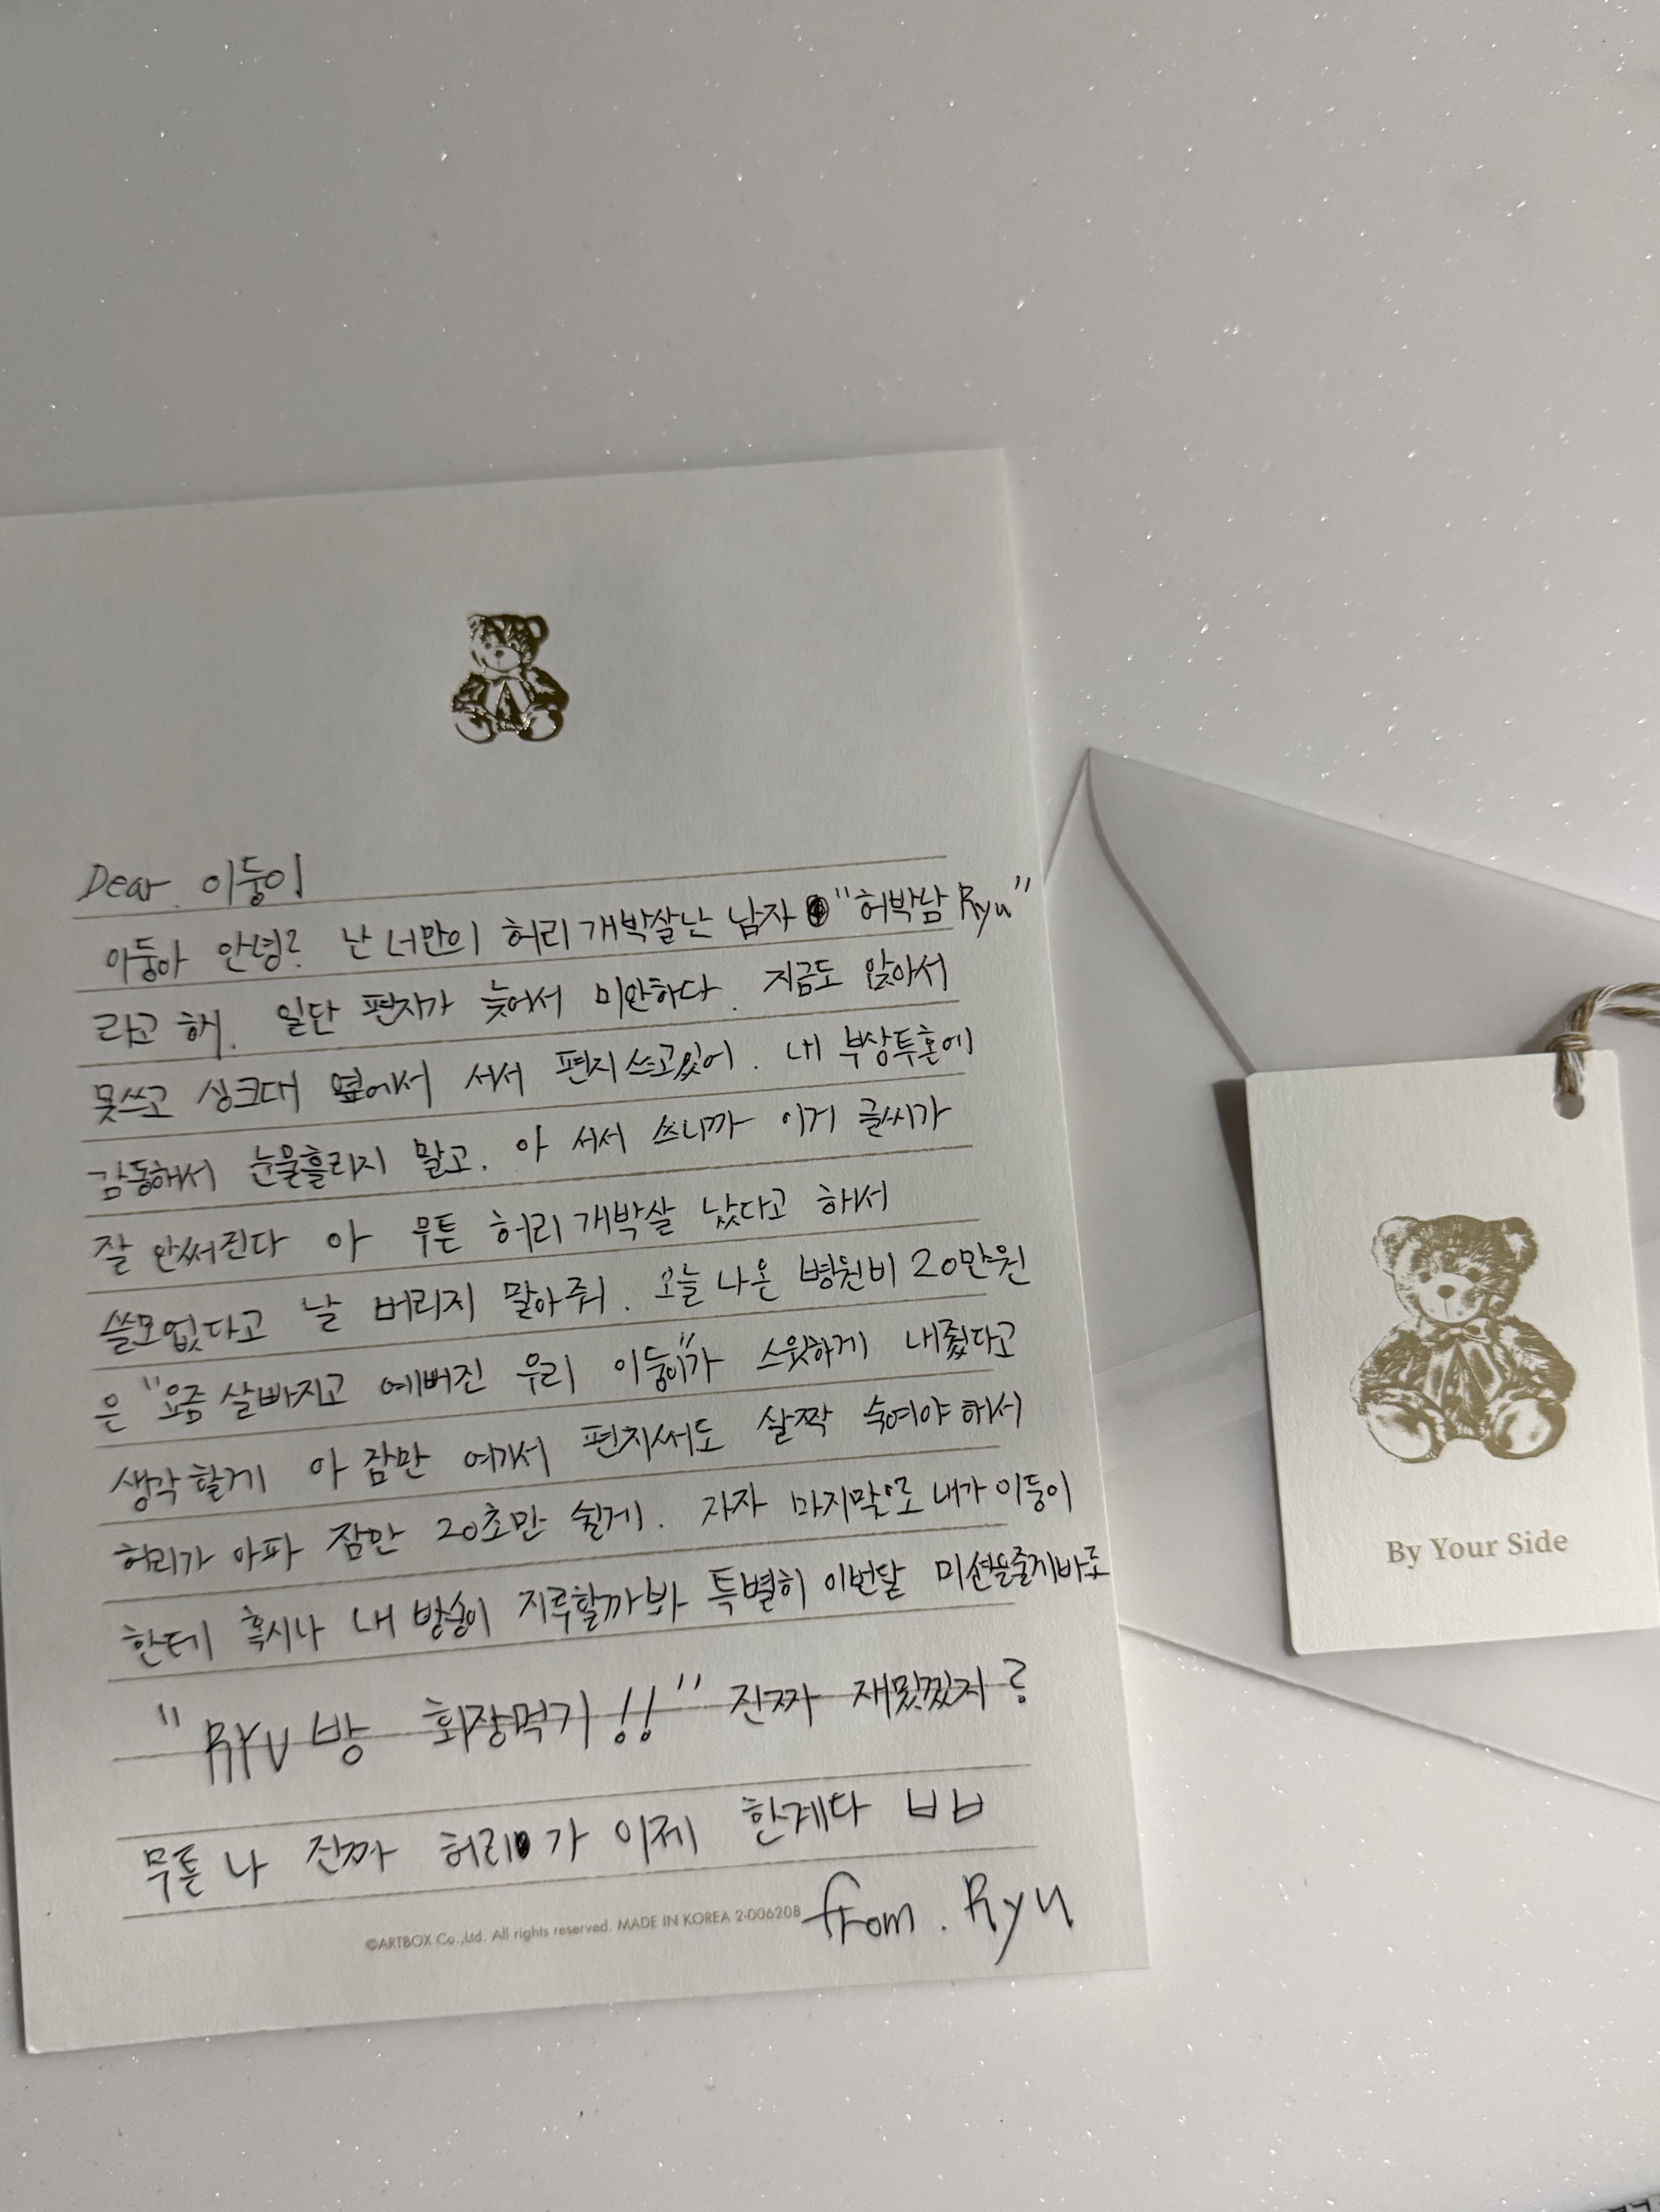 Dear. 이둥이
이둥아 안녕? 난 너만의 허리 개박살난 남자 "허박남 Ryu"
라고 해. 일단 편지가 늦어서 미안하다. 지금도 앉아서
못쓰고 싱크대 옆에서 서서 편지 쓰고있어. 내 부상투혼에
감동해서 눈물흘리지 말고. 아 서서 쓰니까 이거 글씨가
잘 안써진다 아 무튼 허리 개박살 났다고 해서
쓸모없다고 날 버리지 말아줘. 오늘 나온 병원비 20만원
은 "요즘 살빠지고 예뻐진 우리 이둥이"가 스윗하게 내줬다고
생각할게 아 잠만 여기서 편지써도 살짝 숙여야 해서
허리가 아파 잠만 20초만 쉴게. 자자 마지막으로 내가 이둥이
한테 혹시나 내 방송이 지루할까봐 특별히 이번달 미션을줄게바로
"RYU방 회장먹기!!" 진짜 재밌겠지?
무튼 나 진짜 허리가 이제 한계다 ㅂㅂ
from. Ryu
©ARTBOX Co.,Ltd. All rights reserved. MADE IN KOREA 2-006208
By Your Side